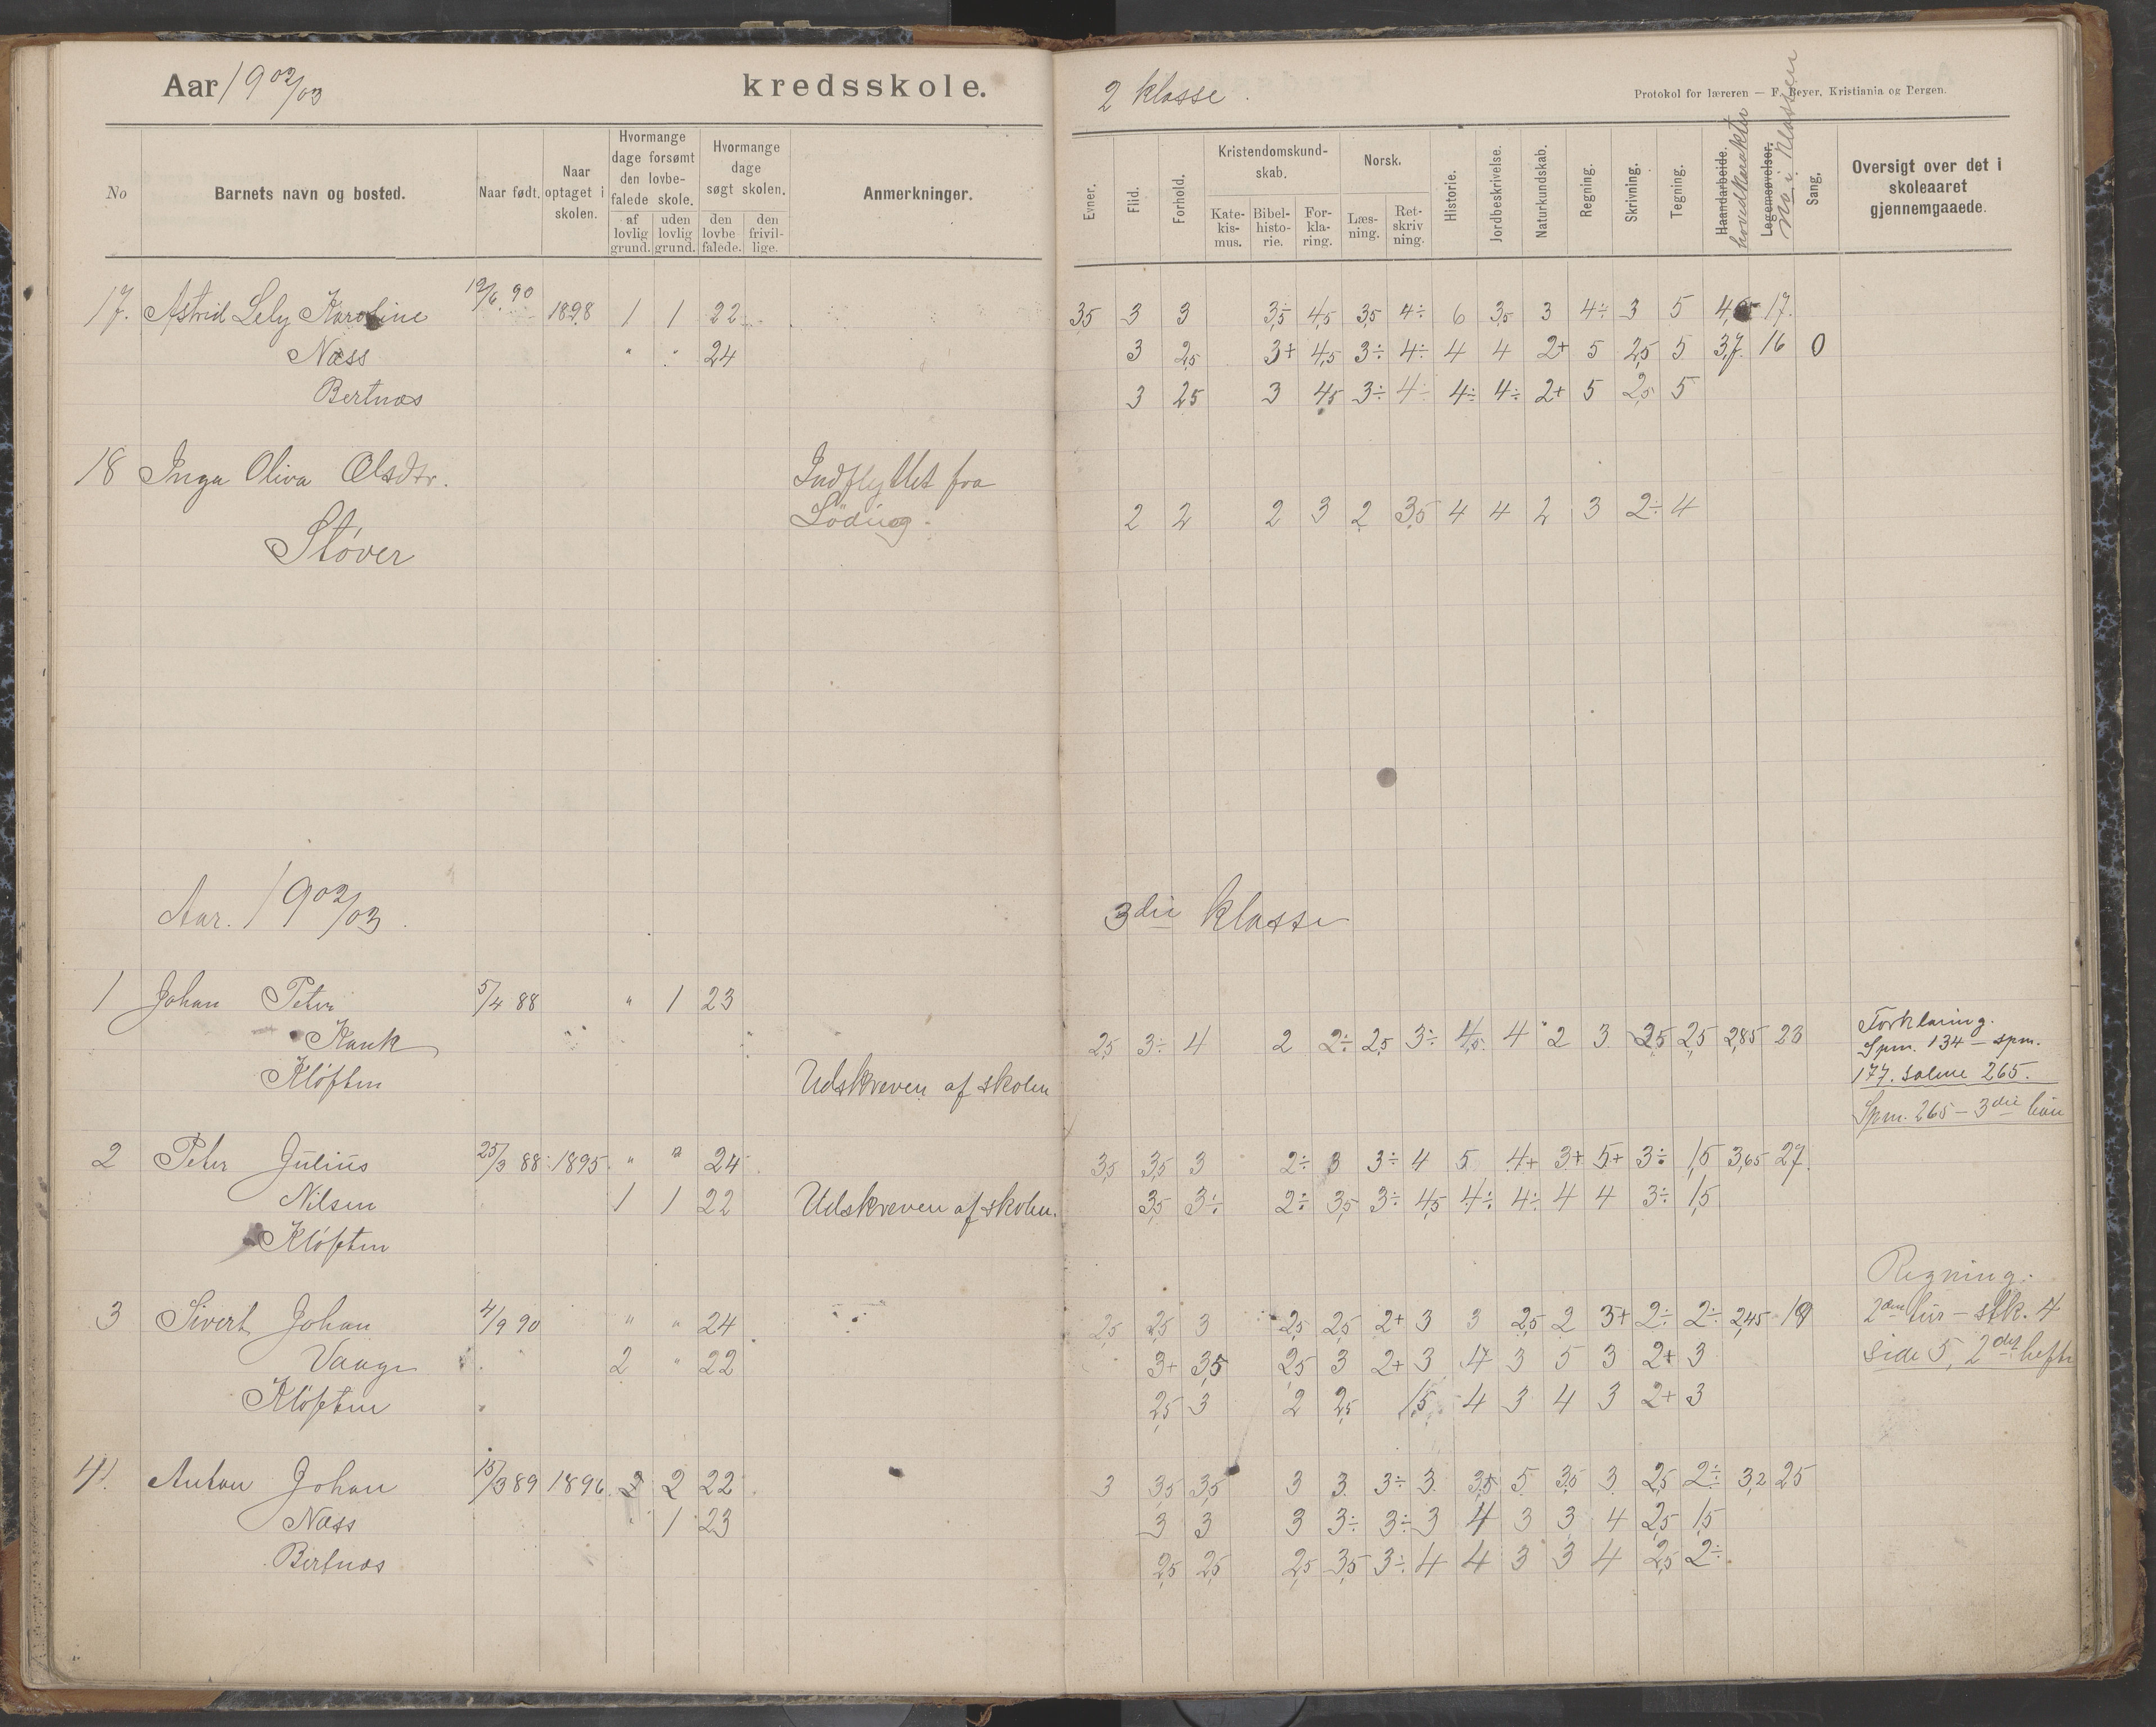 Aar 1902/03 kredsskole. 2 klasse.
Protokol for læreren — F. Beyer, Kristiania og Bergen.
No
Barnets navn og bosted.
Naar født.
Naar optaget i skolen.
Hvormange dage forsømt den lovbefalede skole.
af lovlig grund.
uden lovlig grund.
Hvormange dage søgt skolen.
den lovbefalede.
den frivillige.
Anmerkninger.
Evner.
Flid.
Forhold.
Kristendomskundskab.
Katekismus.
Bibelhistorie.
Forklaring.
Norsk.
Læsning.
Retskrivning.
Historie.
Jordbeskrivelse.
Naturkundskab.
Regning.
Skrivning.
Tegning.
Haandarbeide.
hovedkarakter
Legemsøvelser.
No i klassen
Sang.
Oversigt over det i skoleaaret gjennemgaaede.
17. Astrid Lely Karoline 19/6 90 1898 1 1 22 3,5 3 3 3,5 4,5 3,5 4÷ 6 3,5 3 4÷ 3 5 17.
Næss " " 24 3 2,5 3+ 4,5 3÷ 4÷ 4 4 2+ 5 2,5 5 3,7. 16 0
Bertnæs 3 2,5 3 4,5 3÷ 4÷ 4÷ 4÷ 2+ 5 2,5 5
18 Inga Oliva Olsdtr. Indflyttet fra
Løding. 2 2 2 3 2 3,5 4 4 2 3 2÷ 4
Støver
Aar. 1902/03. 3die klasse
1 Johan Peter 5/4 88 " 1 23
Kank 2,5 3÷ 4 2 2÷ 2,5 3÷ 4,5 4 2 3 2,5 2,5 2,85 23
Kløften Udskreven af skolen
Forklaring.
Spm. 134 – spm.
177. salme 265.
Spm. 265 – 3die bøn
2 Peter Julius 25/3 88 1895 " " 24 3,5 3,5 3 2÷ 3 3÷ 4 5 4+ 3+ 5+ 3÷ 1,5 3,65 27.
Nilsen 1 1 22 Udskreven af skolen. 3,5 3÷ 2÷ 3,5 3÷ 4,5 4÷ 4÷ 4 4 3÷ 1,5
Kløften
3 Sivert Johan 4/9 90 " " 24 2,5 2,5 3 2,5 2,5 2+ 3 3 2,5 2 3+ 2÷ 2÷ 2,45 19
Vaage 2 " 22 3+ 3,5 2,5 3 2+ 3 4 3 5 3 2+ 3
Kløften 2,5 3 2 2,5 1,5 4 3 4 3 2+ 3
Regning.
2den tur – stk. 4
side 5, 2det hefte
4. Anton Johan 15/3 89 1896 2 2 22 3 3,5 3,5 3 3 3÷ 3 3,5 5 3,5 3 2,5 2÷ 3,2 25
Næss " 1 23 3 3 3 3÷ 3÷ 3 4 3 3 4 2,5 1,5
Bertnæs 2,5 2,5 2,5 3,5 3÷ 4 4 3 3 4 2,5 2÷